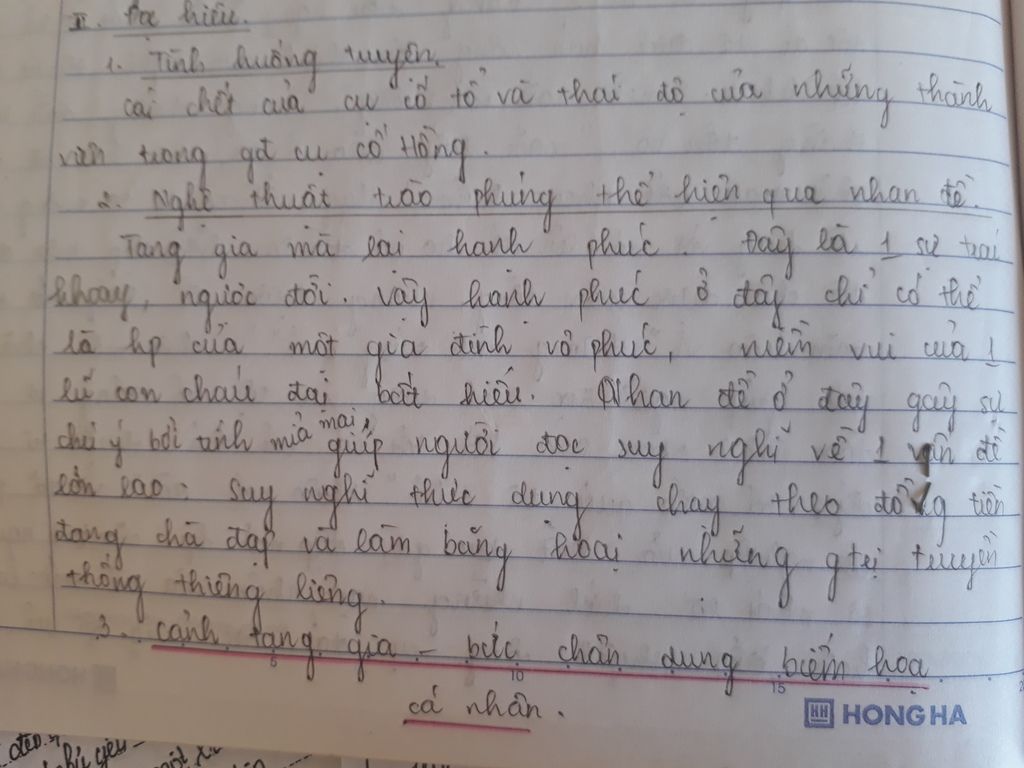 II. Đọc hiểu.
1. Tình huống truyện.
Cái chết của cụ cố tổ và thái độ của những thành
viên trong gđ cụ cố Hồng.
2. Nghệ thuật trào phúng thể hiện qua nhan đề.
Tang gia mà lại hạnh phúc. Đây là 1 sự trái
khoáy, ngược đời. Vậy hạnh phúc ở đây chỉ có thể
là hp của một gia đình vô phúc, niềm vui của 1
lũ con cháu đại bất hiếu. Nhan đề ở đây gây sự
chú ý bởi tính mỉa mai, giúp người đọc suy nghĩ về 1 vấn đề
lớn lao: suy nghĩ thực dụng chạy theo đồng tiền
đang chà đạp và làm băng hoại những gtrị truyền
thống thiêng liêng.
3. cảnh tang gia - bức chân dung biếm họa
cá nhân.
5 10 15
HH HONG HA